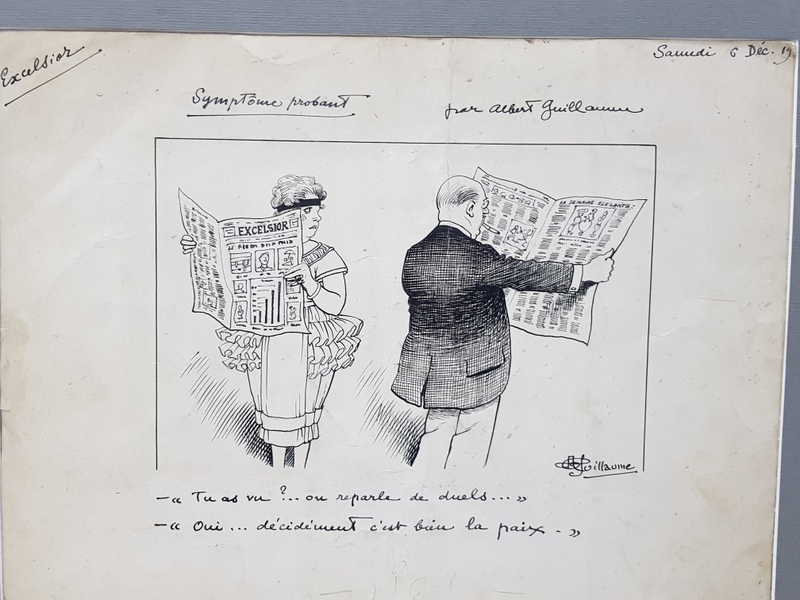 Excelsior
Samedi 6 Déc. 19
Symptôme probant par Albert Guillaume
EXCELSIOR
LA SEMAINE ELEGANTE:
Guillaume
— « Tu as vu ?.. on reparle de duels... »
— « Oui ... décidément c'est bien la paix. »